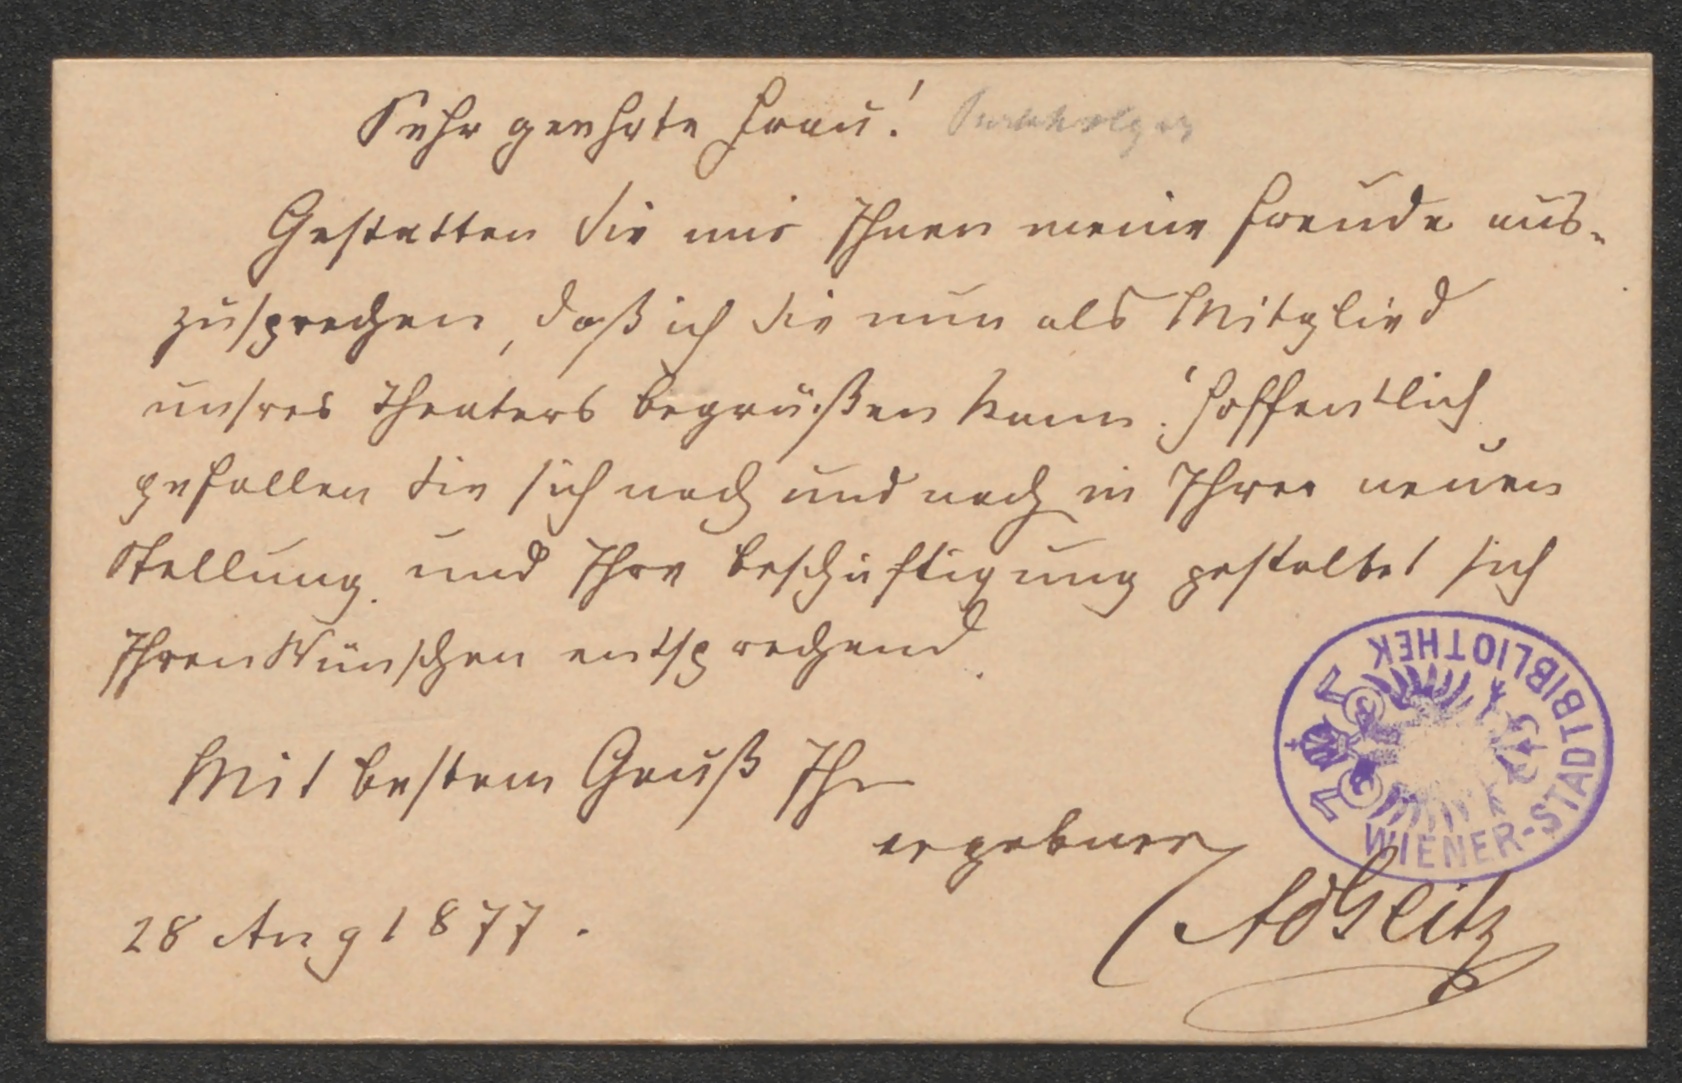 Sehr geehrte Frau!
Gestatten Sie mir Ihnen meine Freude aus-
zusprechen, daß ich Sie nun als Mitglied
unsres Theaters begrüßen kann! Hoffentlich
gefallen Sie sich nach und nach in Ihrer neuen
Stellung und Ihre Beschäftigung gestaltet sich
Ihren Wünschen entsprechend.
Mit bestem Gruß Ihr
ergebener
28 Aug 1877.
WIENER-STADTBIBLIOTHEK